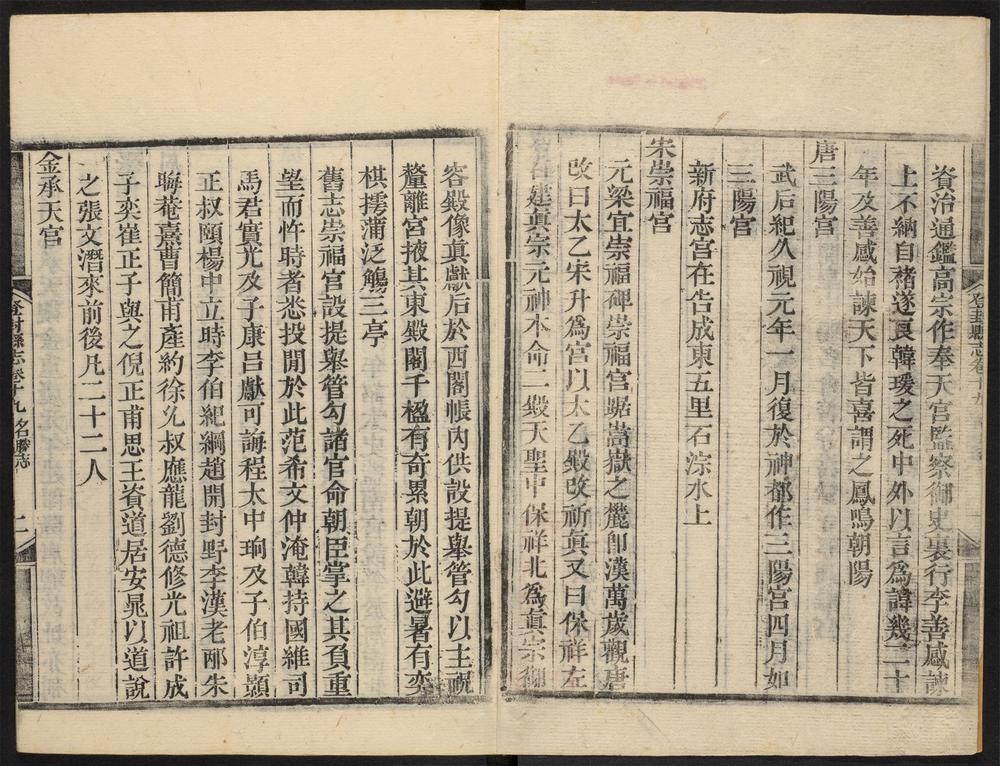 資治通鑑高宗作奉天宮監察御史裏行李善感諫
上不納自褚遂良韓瑗之死中外以言爲諱幾二十
年及善感始諫天下皆喜謂之鳳鳴朝陽
唐三陽宮
武后紀久視元年一月復於神都作三陽宮四月如
三陽宮
新府志宮在告成東五里石淙水上
宋崇福宮
元梁宜崇福碑崇福宮踞嵩嶽之麓卽漢萬歲觀唐
改曰太乙宋升爲宮以太乙殿改祈眞又曰保祥左
右建眞宗元神本命二殿天聖中保祥北爲眞宗御
登封縣志卷十九
容殿像眞獻后於西閣帳內供設提舉管勾以主祝
釐離宮掖其東殿閣千楹有奇累朝於此避暑有奕
棋摴蒲泛觴三亭
舊志崇福宮設提舉管勾諸官命朝臣掌之其負重
望而忤時者悉投閒於此范希文仲淹韓持國維司
馬君實光及子康呂獻可誨程太中珦及子伯淳顥
正叔頤楊中立時李伯紀綱趙開封野李漢老邴朱
晦菴熹曹簡甫產約徐允叔應龍劉德修光祖許成
子奕崔正子與之倪正甫思王資道居安晁以道說
之張文潛來前後凡二十二人
金承天宮
登封縣志卷十九 名勝志 二